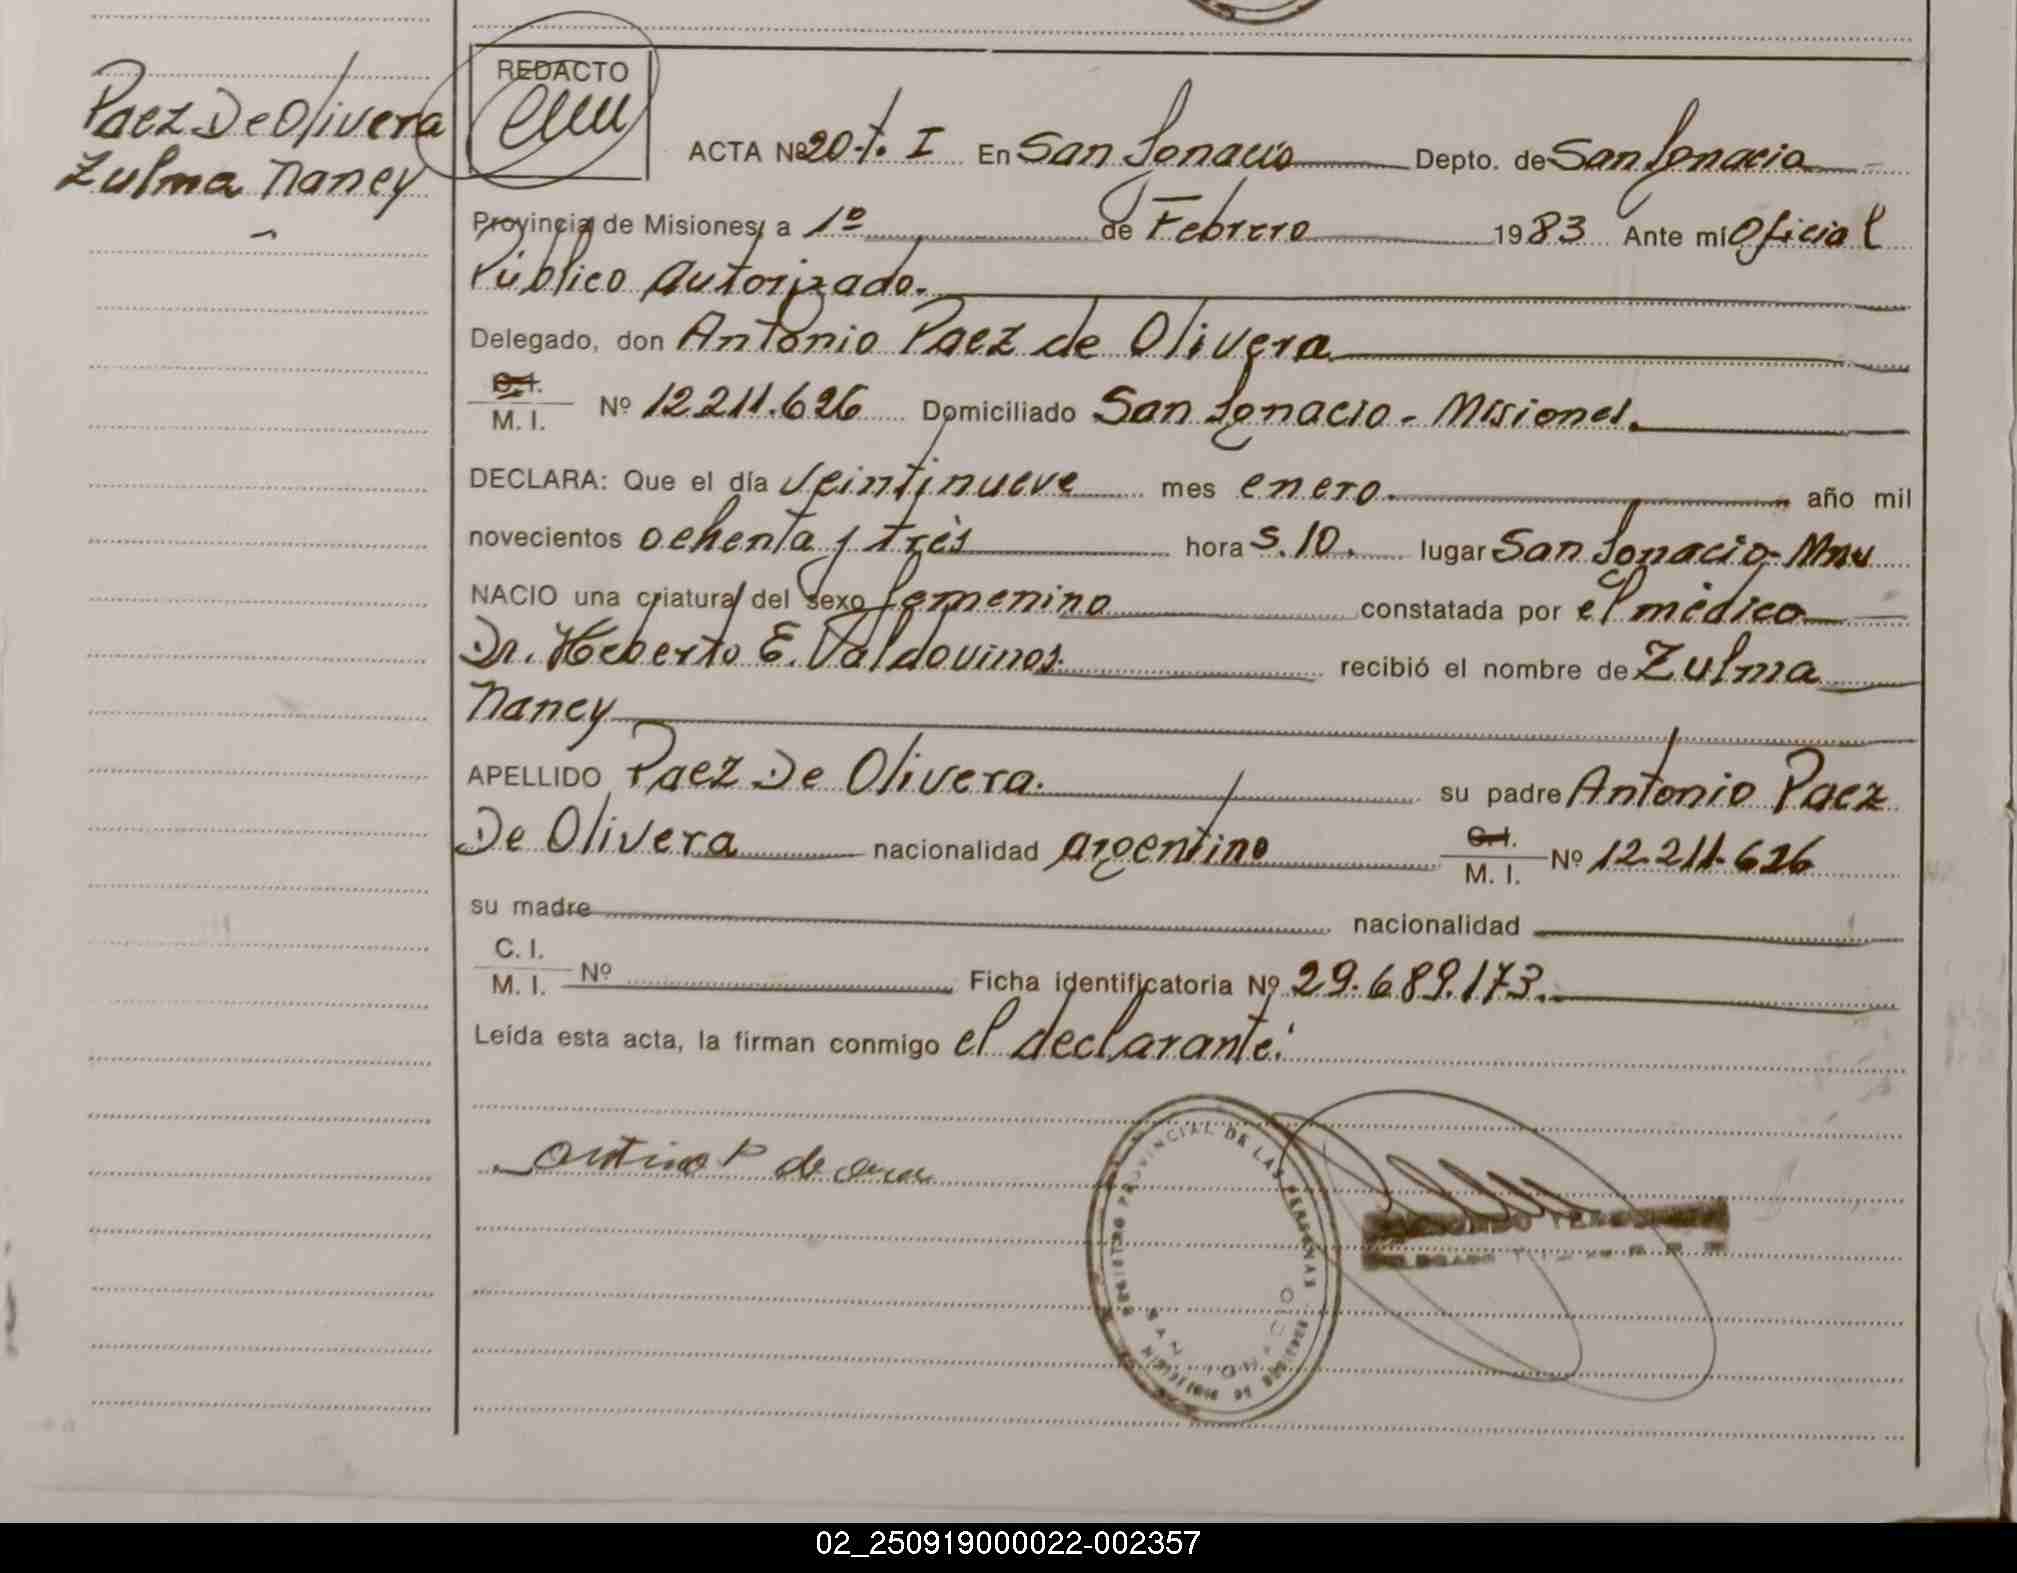 Paez De Olivera
Zulma Nancy
REDACTO
ACTA Nº 20-t. I En San Ignacio Depto. de San Ignacio
Provincia de Misiones, a 1º de Febrero 1983 Ante mí Oficial
Público Autorizado.
Delegado, don Antonio Paez de Olivera
C.I.
M. I. Nº 12.211.626 Domiciliado San Ignacio - Misiones.
DECLARA: Que el día veintinueve mes enero. año mil
novecientos ochenta y très hora s.10. lugar San Ignacio - Mnes
NACIO una criatura del sexo femenino constatada por el mèdico
Dr. Heberto E. Valdovinos. recibió el nombre de Zulma
Nancy
APELLIDO Paez De Olivera. su padre Antonio Paez
De Olivera nacionalidad argentino C.I.
M. I. Nº 12.211.626
su madre nacionalidad
C. I.
M. I. Nº Ficha identificatoria Nº 29.689.173.
Leída esta acta, la firman conmigo el declarante.
REGISTRO PROVINCIAL DE LAS PERSONAS
SAN IGNACIO
02_250919000022-002357